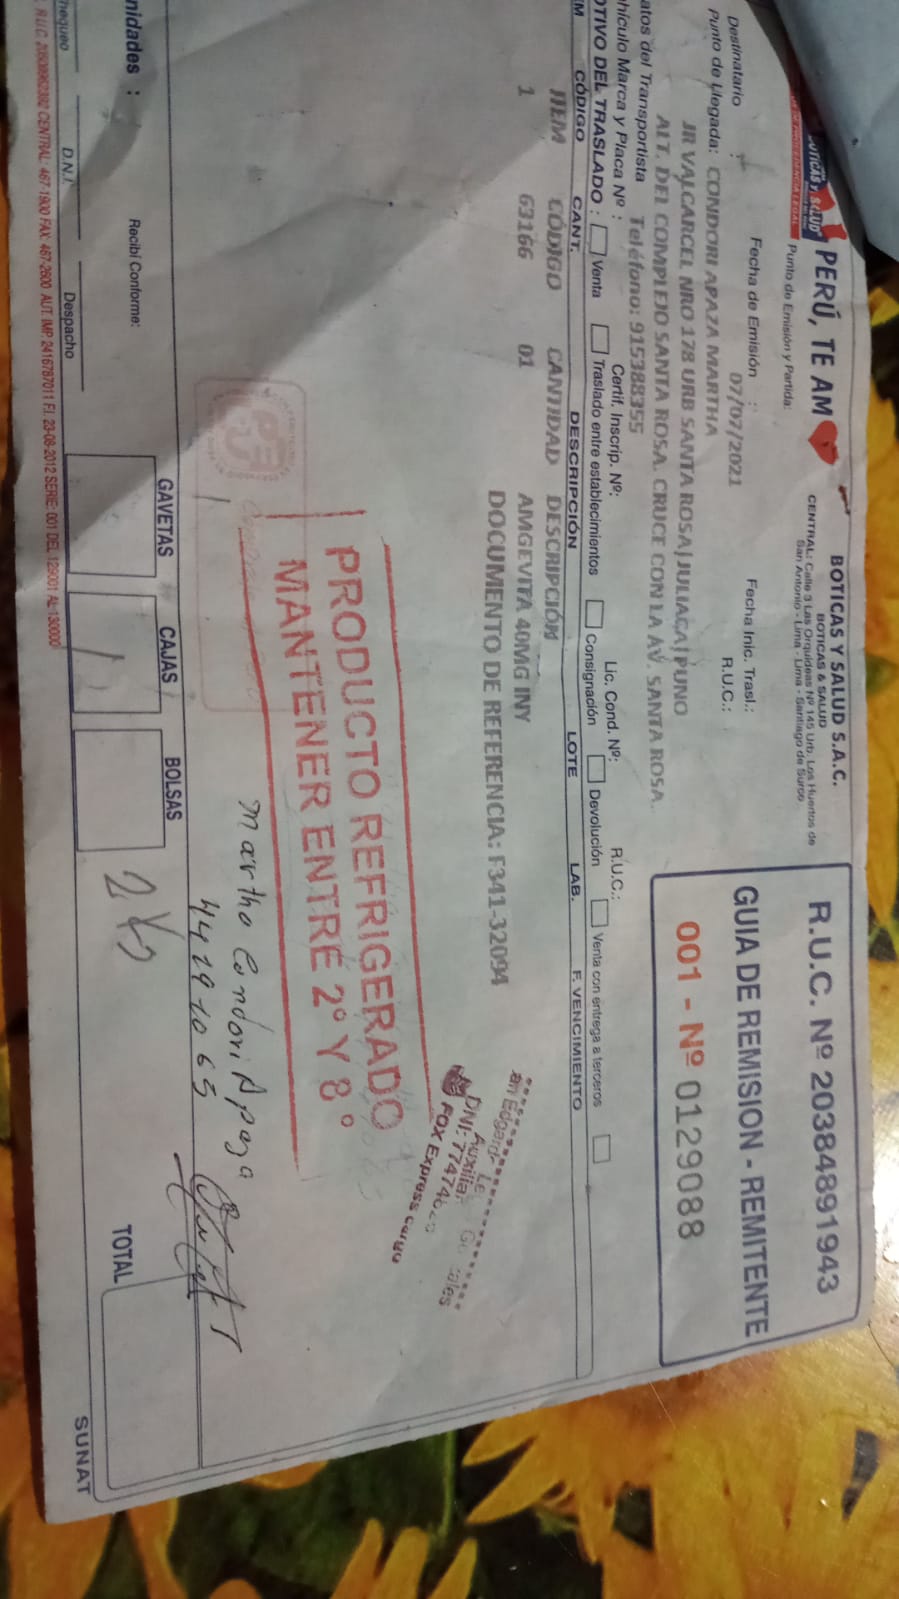 BOTICAS Y SALUD
PERÚ, TE AM
BOTICAS Y SALUD S.A.C.
BOTICAS & SALUD
CENTRAL: Calle 3 Las Orquídeas Nº 145 Urb. Los Huertos de
San Antonio - Lima - Lima - Santiago de Surco
Punto de Emisión y Partida:
R.U.C. Nº 20384891943
GUIA DE REMISION - REMITENTE
001 - Nº 0129088
Fecha de Emisión : 07/07/2021
Fecha Inic. Trasl.:
Destinatario :
R.U.C.:
Punto de Llegada: CONDORI APAZA MARTHA
JR VALCARCEL NRO 178 URB SANTA ROSA|JULIACA|PUNO
ALT. DEL COMPLEJO SANTA ROSA. CRUCE CON LA AV. SANTA ROSA.
atos del Transportista Teléfono: 915388355
R.U.C.:
hículo Marca y Placa Nº : Certif. Inscrip. Nº: Lic. Cond. Nº:
OTIVO DEL TRASLADO : Venta Traslado entre establecimientos Consignación Devolución Venta con entrega a terceros
EM CÓDIGO CANT. DESCRIPCIÓN LOTE LAB. F. VENCIMIENTO
ITEM CÓDIGO CANTIDAD DESCRIPCIÓN
1 63166 01 AMGEVITA 40MG INY
DOCUMENTO DE REFERENCIA: F341-32094
DNI: 77474
FOX Express cargo
PRODUCTO REFRIGERADO
MANTENER ENTRE 2º Y 8º
martha Condori Apaza
44291065
nidades :
Recibí Conforme:
GAVETAS CAJAS BOLSAS
1
2. K
TOTAL
hequeo D.N.I. Despacho
CENTRAL: 467-1900 FAX: 467-2600 AUT. IMP. 2416787011 F.I. 23-08-2012 SERIE: 001 DEL 129001 AL 130000
SUNAT